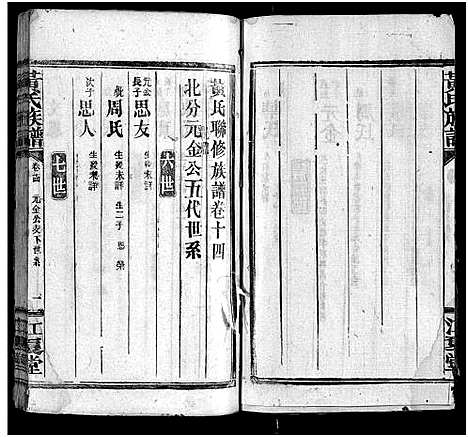 黃氏聯修族譜卷十四
北分元金公五代世系
六世
元公長子 思友 生歿未詳
歿 周氏 生歿未詳 生二子 恩 榮
次子 思人 生歿未詳
七世
黃氏族譜 卷十四 元金公支下世系 一 江夏堂
黃氏族譜
江夏堂